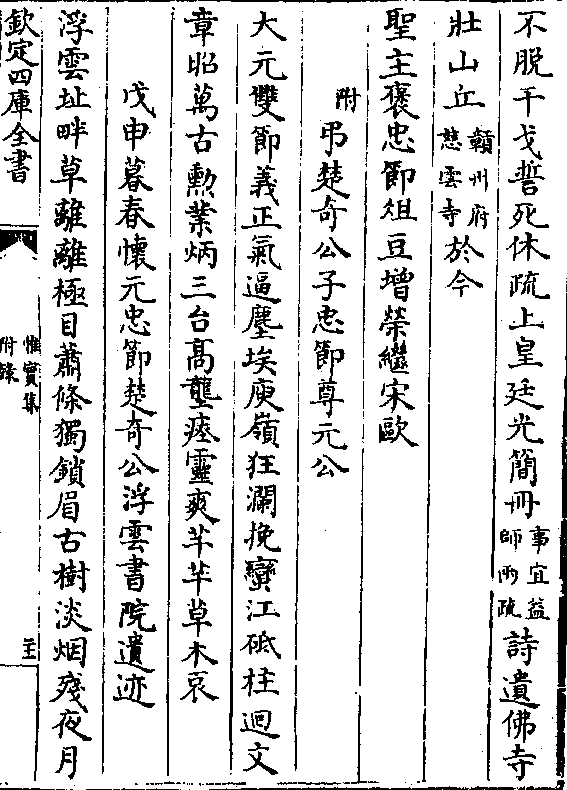 不脱干戈誓死休疏上皇廷光簡冊事宜益師兩疏詩遺佛寺
壯山丘贛州府慈雲寺於今
聖主褒忠節俎豆增榮繼宋歐
附弔楚奇公子忠節尊元公
大元雙節義正氣逼塵埃庾嶺狂瀾挽蠻江砥柱迴文
章昭萬古勲業炳三台髙壟瘞靈爽芊芊草木哀
戊申暮春懷元忠節楚奇公浮雲書院遺迹
浮雲址畔草離離極目蕭條獨鎖眉古樹淡烟殘夜月
欽定四庫全書
惟實集
附錄